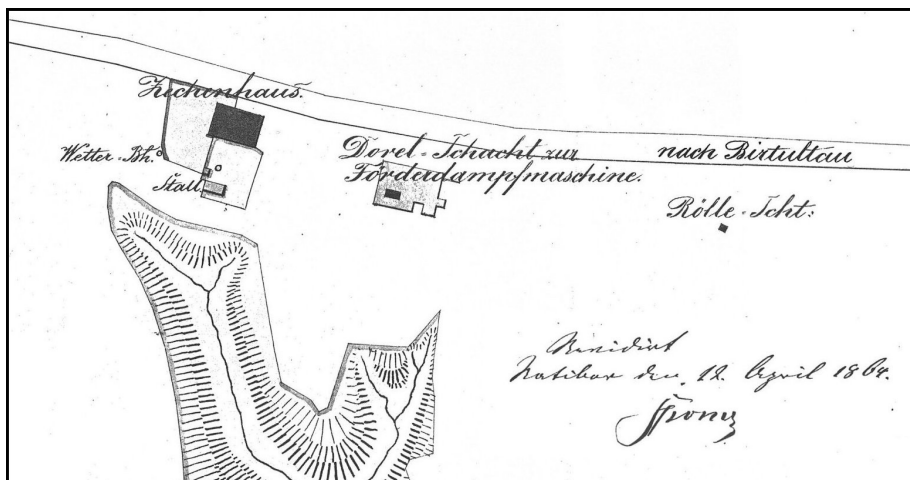 Zechenhaus.
Wetter-Bh.
Stall.
Dorel-Schacht zur
Förderdampfmaschine.
nach Birtultau
Rölle-Scht:
Revidirt
Ratibor den 12. April 1864.